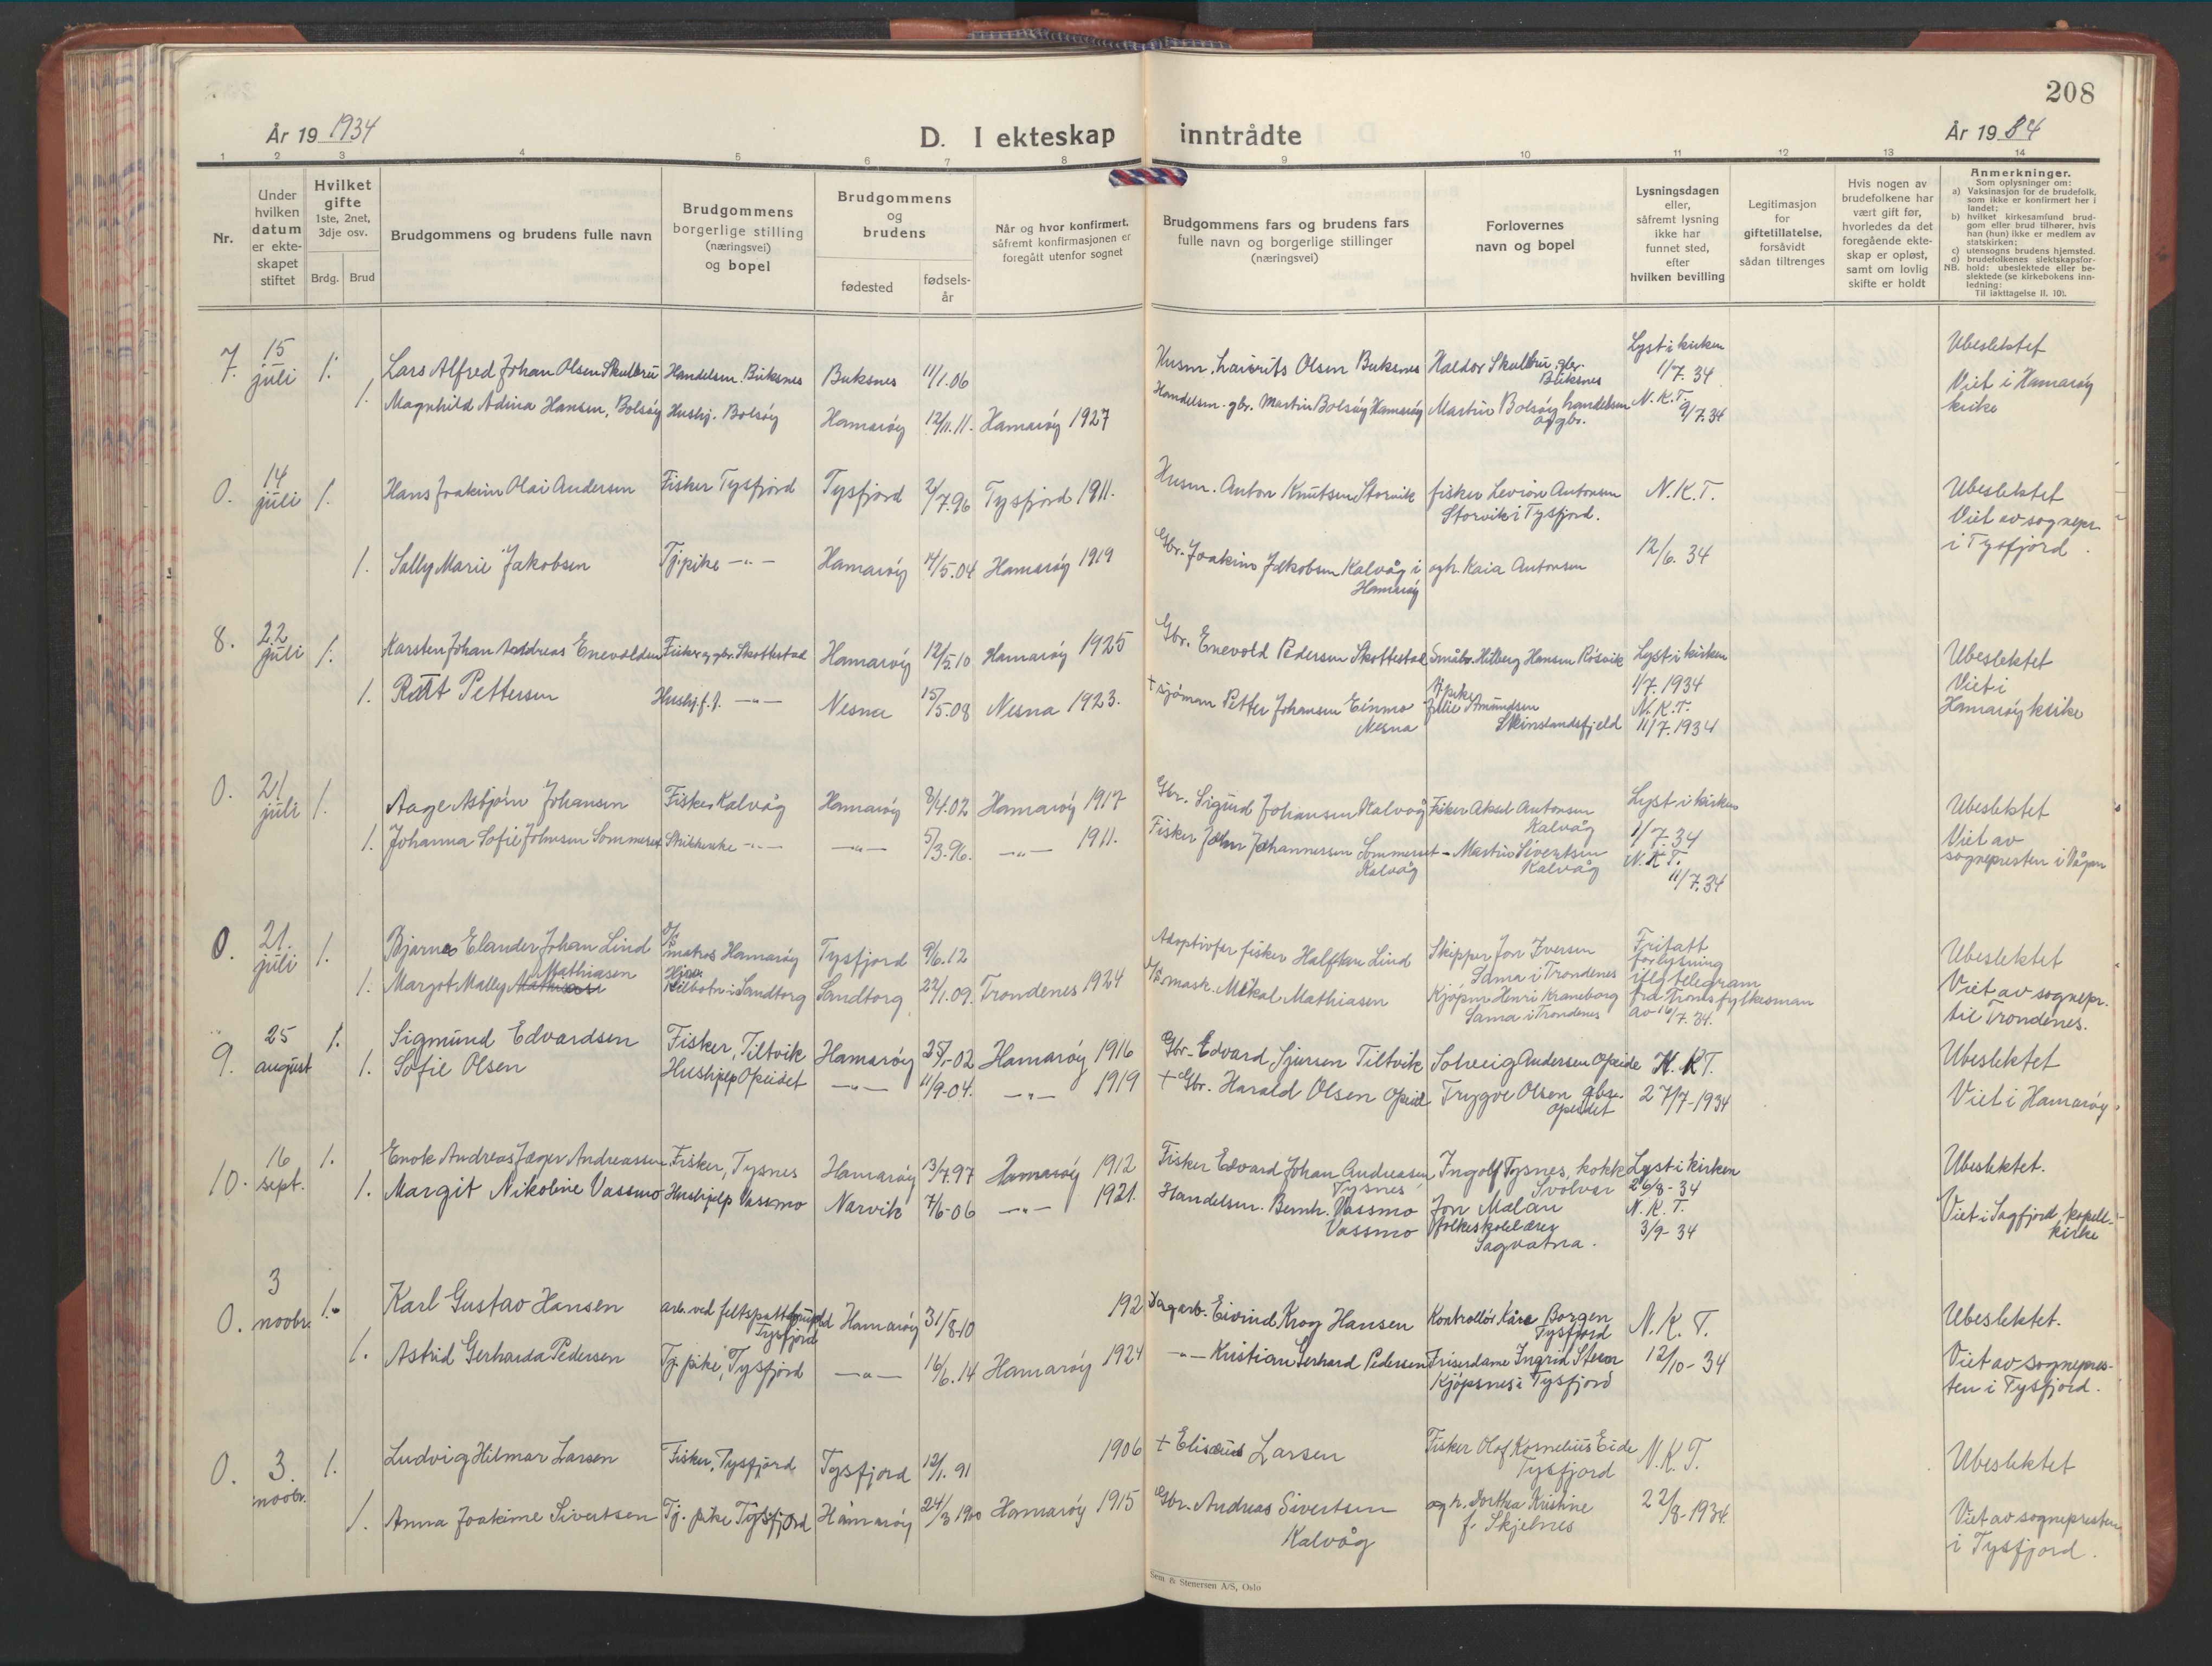 208
År 19 1934
D. I ekteskap inntrådte
År 19 34
1 2 3 4 5 6 7 8 9 10 11 12 13 14
Nr.
Under hvilken datum er ekteskapet stiftet
Hvilket gifte
1ste, 2net, 3dje osv.
Brdg. Brud
Brudgommens og brudens fulle navn
Brudgommens borgerlige stilling (næringsvei) og bopel
Brudgommens og brudens
fødested
fødsels-år
Når og hvor konfirmert, såfremt konfirmasjonen er foregått utenfor sognet
Brudgommens fars og brudens fars fulle navn og borgerlige stillinger (næringsvei)
Forlovernes navn og bopel
Lysningsdagen eller, såfremt lysning ikke har funnet sted, efter hvilken bevilling
Legitimasjon for giftetillatelse, forsåvidt sådan tiltrenges
Hvis nogen av brudefolkene har vært gift før, hvorledes da det foregående ekteskap er opløst, samt om lovlig skifte er holdt
Anmerkninger.
Som oplysninger om:
a) Vaksinasjon for de brudefolk, som ikke er konfirmert her i landet;
b) hvilket kirkesamfund brudgom eller brud tilhører, hvis han (hun) ikke er medlem av statskirken;
c) utensogns brudens hjemsted.
d) brudefolkenes slektskapsforhold: ubeslektede eller beslektede (se kirkebokens innledning:
NB. Til iakttagelse II. 10).
7. 15 juli 1. Lars Alfred Johan Olsen Skulbru Handelsm. Buksnes Buksnes 11/1.06 Husm. Laurits Olsen Buksnes Haldor Skulbru, gbr. Buksnes Lyst i kirken 1/7. 34 Ubeslektet
1. Magnhild Adina Hansen, Bolsøy Hushj. Bolsøy Hamarøy 12/11.11. Hamarøy 1927 Handelsm. gbr. Martin Bolsøy Hamarøy Martin Bolsøy handelsm og gbr. N. K. T. 9/7.34 Viet i Hamarøy kirke
0. 14 juli 1. Hans Joakim Olai Andersen Fisker Tysfjord Tysfjord 2/7.96 Tysfjord 1911. Husm. Anton Knutsen Storvik fisker Levion Antonsen Storvik i Tysfjord. N. K. T. Ubeslektet Viet av sognepr. i Tysfjord.
1. Sally Marie Jakobsen Tj.pike -"- Hamarøy 4/5.04 Hamarøy 1919 Gbr. Joakim Jakobsen Kalvåg i Hamarøy og h. Kaia Antonsen 12/6. 34
8. 22 juli 1. Karsten Johan Andreas Enevoldsen Fisker og gbr. Skottestad Hamarøy 12/5.10 Hamarøy 1925 Gbr. Enevold Pedersen Skottestad Småbr. Hilberg Hansen Rösvik Lyst i kirken 1/7. 1934 Ubeslektet
1. Rut Pettersen Hushj. f. J. -"- Nesna 15/5.08 Nesna 1923. + sjøman Petter Johansen Einmo Nesna Tj.pike Julie Amundsen Skinslandsfjeld N. K. T. 11/7.1934 Viet i Hamarøy kirke
0. 21 juli 1. Aage Asbjørn Johansen Fisker Kalvåg Hamarøy 8/4.02 Hamarøy 1917 Gbr. Sigurd Johansen Kalvåg Fisker Aksel Antonsen Kalvåg Lyst i kirken 1/7.34 Ubeslektet
1. Johanna Sofie Johnsen Sommerset Strikkerske -"- -"- 5/3.96. -"- 1911. Fisker John Johannessen Sommerset Kalvåg - Martin Sivertsen Kalvåg N. K. T. 11/7.34 Viet av sognepresten i Vågan
0. 21. juli 1. Bjarne Elander Johan Lind matros Hamarøy Tysfjord 9/6.12 Adoptivfar fisker Halfdan Lind Skipper Jon Iversen Sama i Trondenes Fritatt for lysning Ubeslektet
1. Margot Mally Mathiasen Kilbotn i Sandtorg Sandtorg 22/1.09. Trondenes 1924 mask. Mikal Mathiasen Kjøpm Henri Kraneborg Sama i Trondenes iflg telegram fra Troms fylkesman av 16/7.34. Viet av sognepr. til Trondenes.
9. 25 august 1. Sigmund Edvardsen Fisker, Tiltvik Hamarøy 25/1-02 Hamarøy 1916 Gbr. Edvard Sjursen Tiltvik Solveig Andersen Opeide N. K. T. Ubeslektet
1. Sofie Olsen Hushjelp Opeidet -"- 11/9-04. -"- 1919 + Gbr. Harald Olsen Opeid Trygve Olsen gbr. Opeidet 27/7-1934 Viet i Hamarøy
10. 16 sept. 1. Enok Andreas Jæger Andreassen Fisker, Tysnes Hamarøy 13/7.97 Hamarøy 1912 Fisker Edvard Johan Andreasen Tysnes Ingolf Tysnes, kokk Svolvær Lyst i kirken 26/8-34 Ubeslektet.
1. Margit Nikoline Vassmo Hushjelp Vassmo Narvik 7/6-06 -"- 1921. Handelsm. Bernh. Vassmo Vassmo Jon Malan folkeskolelærer Sagvatna. N. K. T. 3/9-34 Viet i Sagfjord kapell-kirke
0. 3 novbr. 1. Karl Gustav Hansen arb. ved feltspatbrudd Tysfjord Hamarøy 31/8-10 192 Dagarb. Eivind Krog Hansen Kontrollør Kåre Borgen Tysfjord N. K. T. Ubeslektet.
1. Astrid Gerharda Pedersen Tj. pike, Tysfjord -"- 16/6.14 Hamarøy 1924 -"- Kristian Gerhard Pedersen Friserdame Ingrid Steen Kjöpsnes i Tysfjord 12/10-34 Viet av sognepresten i Tysfjord.
0. 3. novbr. 1. Ludvig Hilmar Larsen Fisker, Tysfjord Tysfjord 12/1.91 1906 + Elisæus Larsen Fisker Olaf Kornelius Eide Tysfjord N. K. T. Ubeslektet
1. Anna Joakime Sivertsen Tj. pike Tysfjord Hamarøy 24/3 1900 Hamarøy 1915 Gbr. Andreas Sivertsen Kalvåg og h. Dorthea Kristine f. Skjelnes 22/8-1934. Viet av sognepresten i Tysfjord.
Sem & Stenersen A/S, Oslo